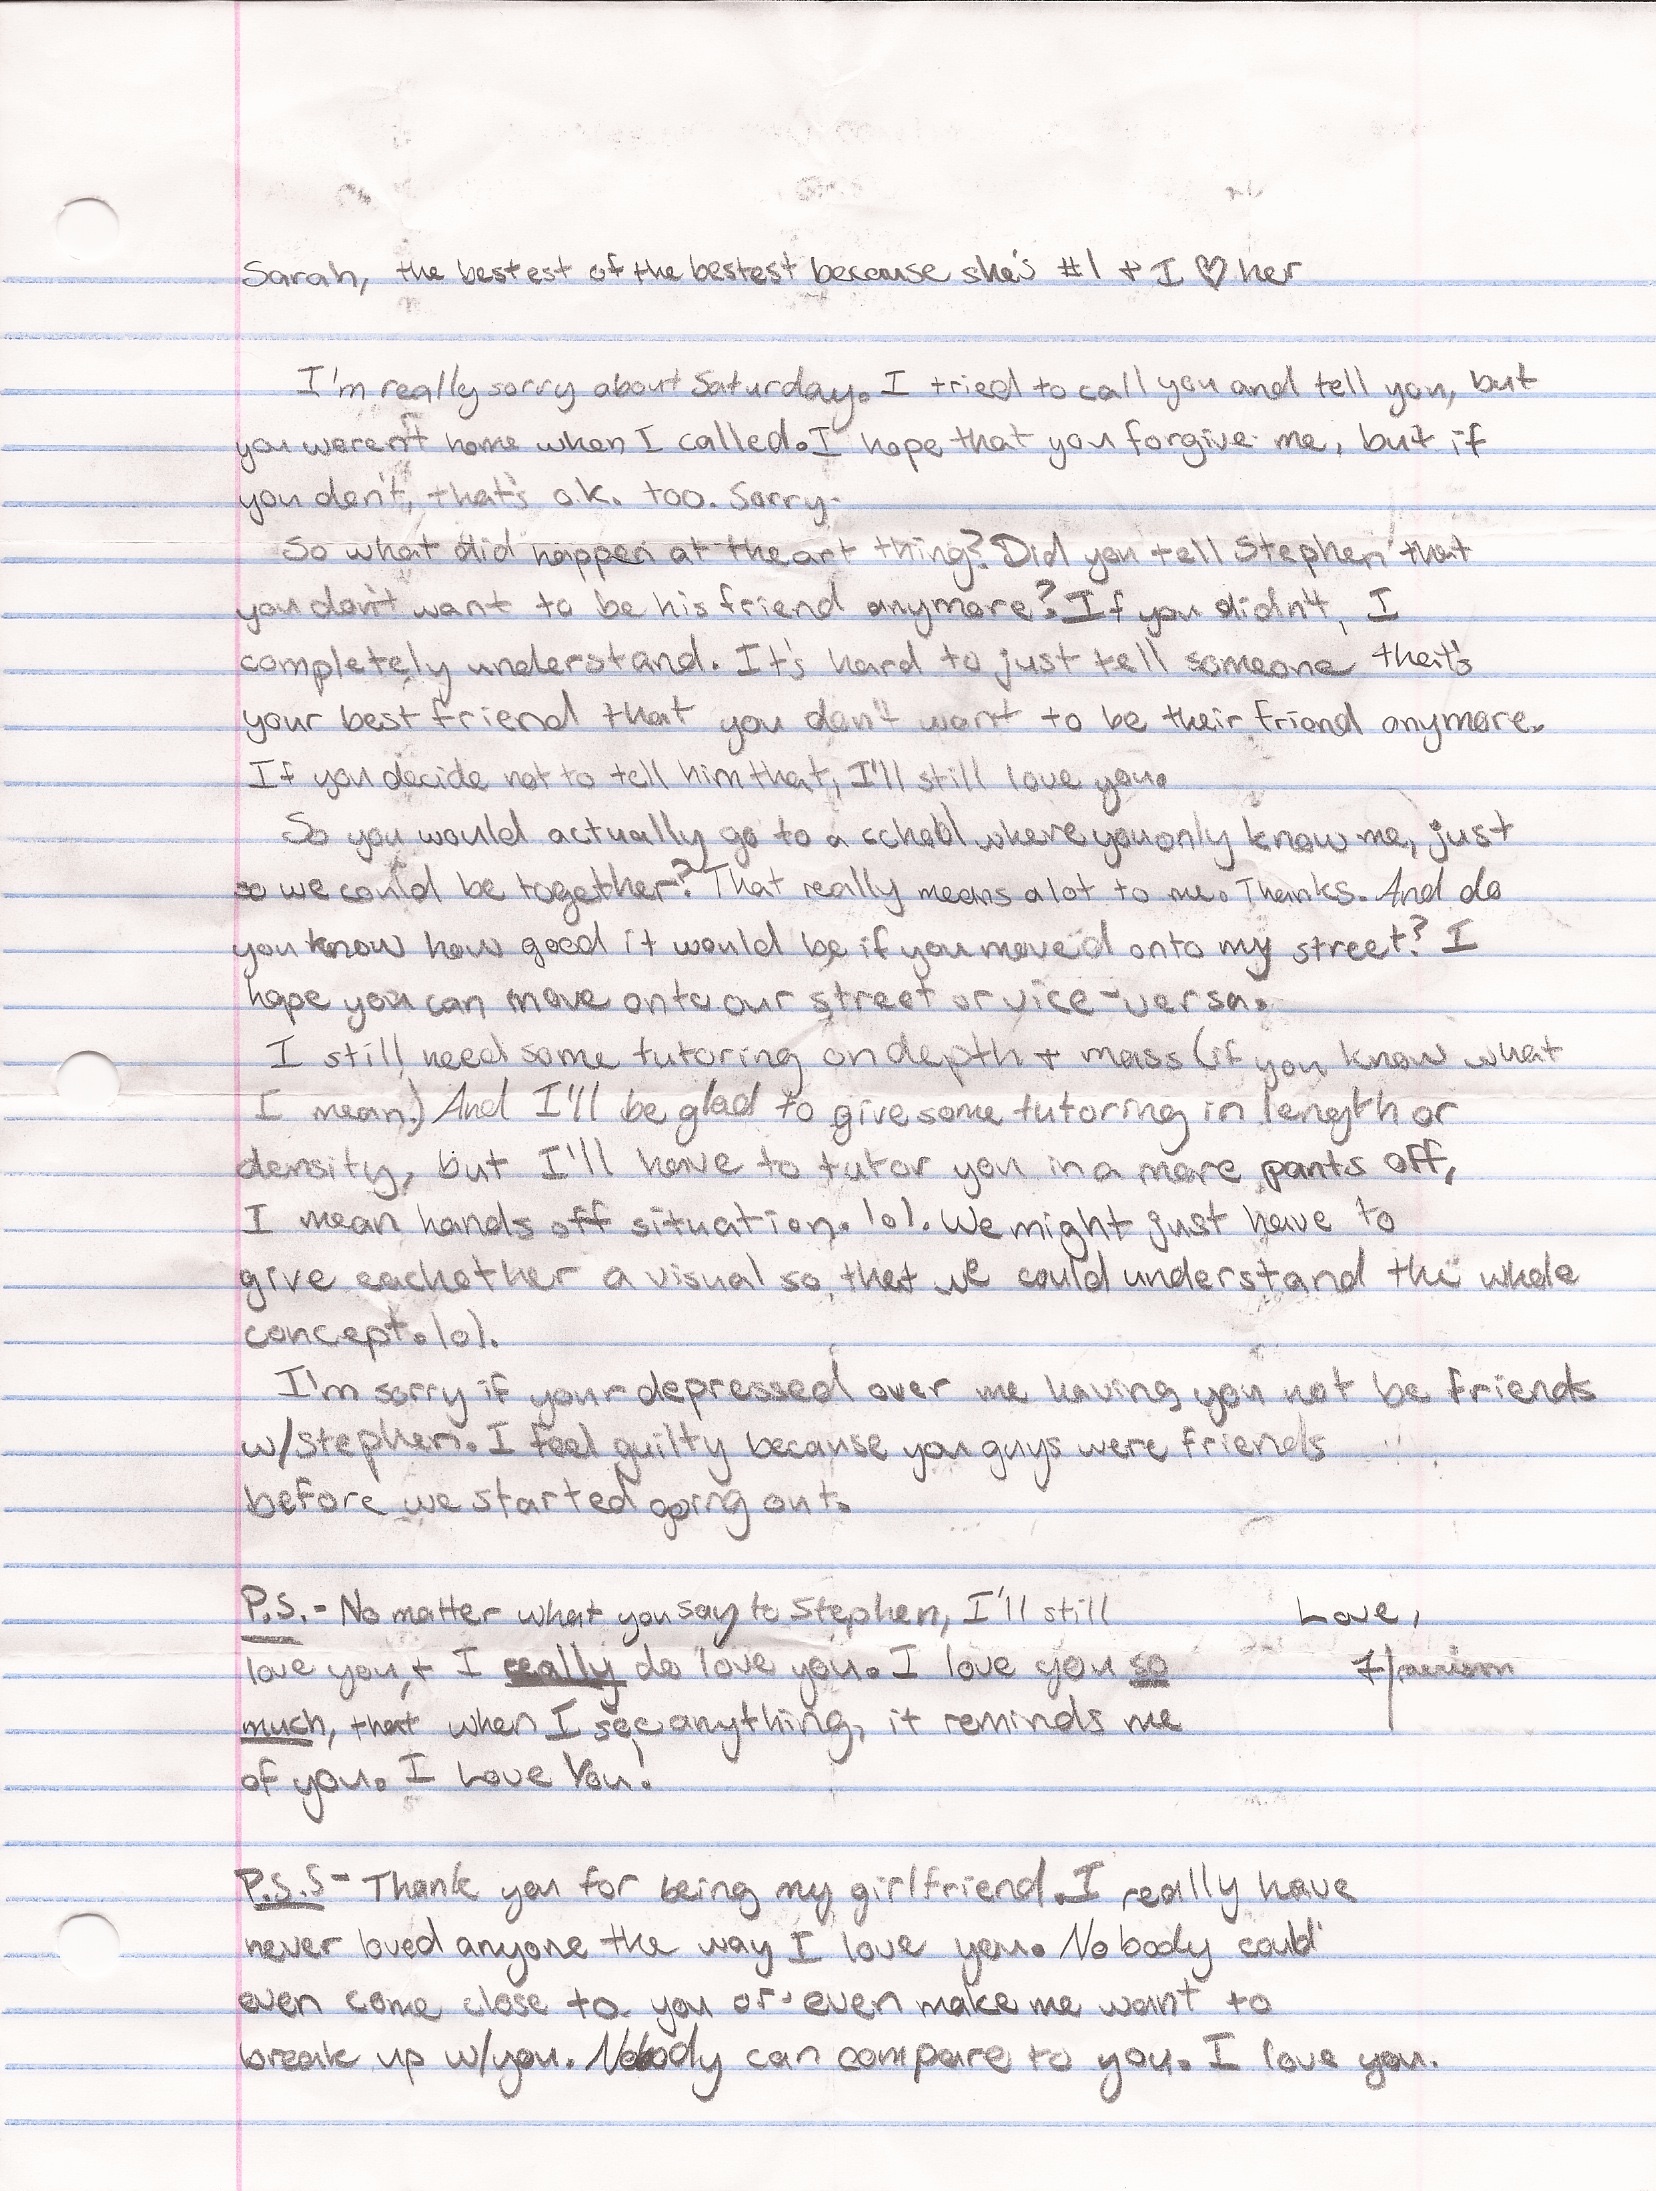 Sarah, the bestest of the bestest because she's #1 + I ♡ her
I'm really sorry about Saturday. I tried to call you and tell you, but
you weren't home when I called. I hope that you forgive me, but if
you don't, that's o.k. too. Sorry.
So what did happen at the art thing? Did you tell Stephen that
you don't want to be his friend anymore? If you didn't, I
completely understand. It's hard to just tell someone that's
your best friend that you don't want to be their friend anymore.
If you decide not to tell him that, I'll still love you.
So you would actually go to a school where you only know me, just
so we could be together? That really means alot to me. Thanks. And do
you know how good it would be if you moved onto my street? I
hope you can move onto our street or vice-versa.
I still need some tutoring on depth + mass (if you know what
I mean.) And I'll be glad to give some tutoring in length or
density, but I'll have to tutor you in a more pants off,
I mean hands off situation. lol. We might just have to
give eachother a visual so, that we could understand the whole
concept. lol.
I'm sorry if your depressed over me having you not be friends
w/Stephen. I feel guilty because you guys were friends
before we started going out.
P.S.- No matter what you say to Stephen, I'll still
love you, + I really do love you. I love you so
much, that when I see anything, it reminds me
of you. I Love You!
Love,
P.S.S- Thank you for being my girlfriend. I really have
never loved anyone the way I love you. Nobody could
even come close to you or even make me want to
break up w/you. Nobody can compare to you. I love you.